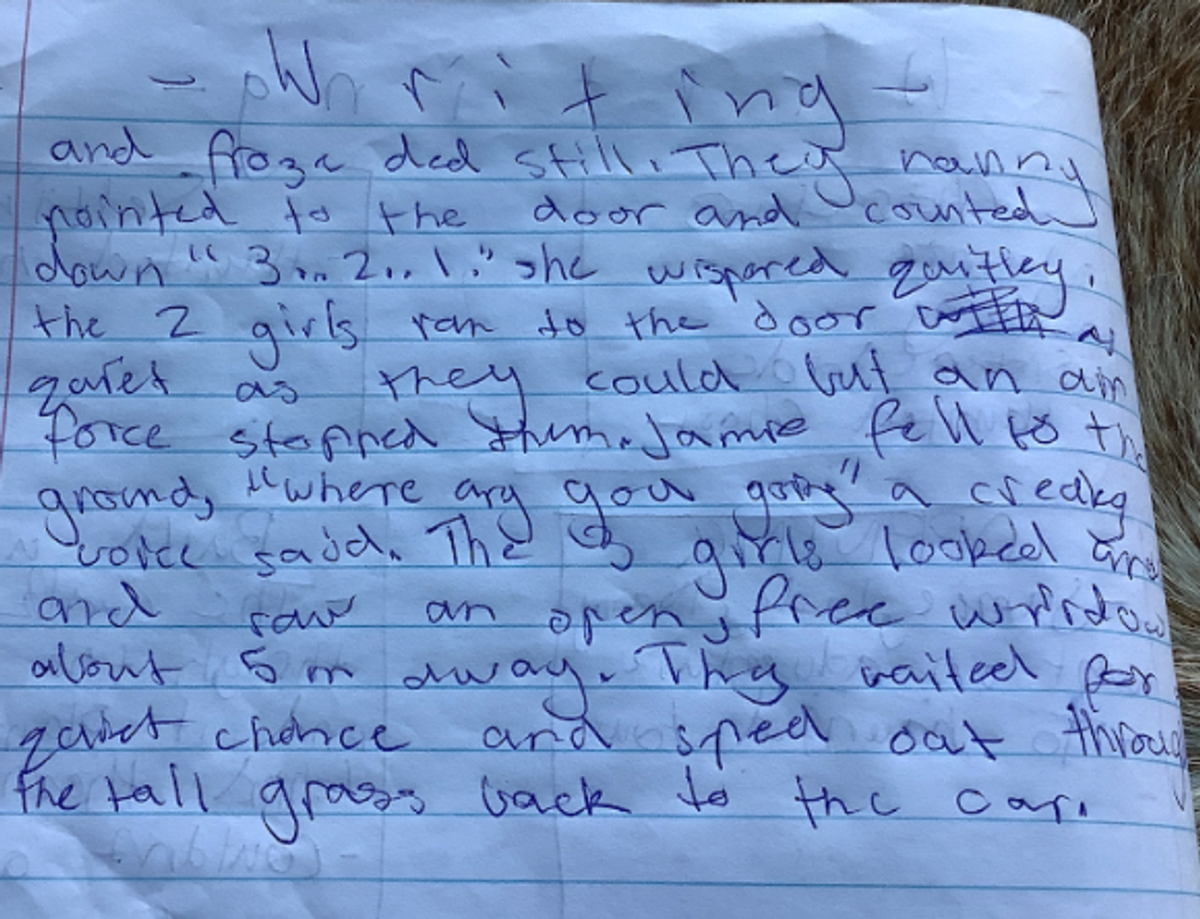 - Writing -
and froze ded still. They nanny
pointed to the door and counted
down "3... 2.. 1." she wispered quitley.
the 2 girls ran to the door as
quiet as they could but an air
force stopped them. Jamie fell to the
ground, "where ary you going" a creaky
voice said. The 3 girls looked
and saw an open, free window
about 5 m away. They waited for
quiet chance and sped out through
the tall grass back to the car.